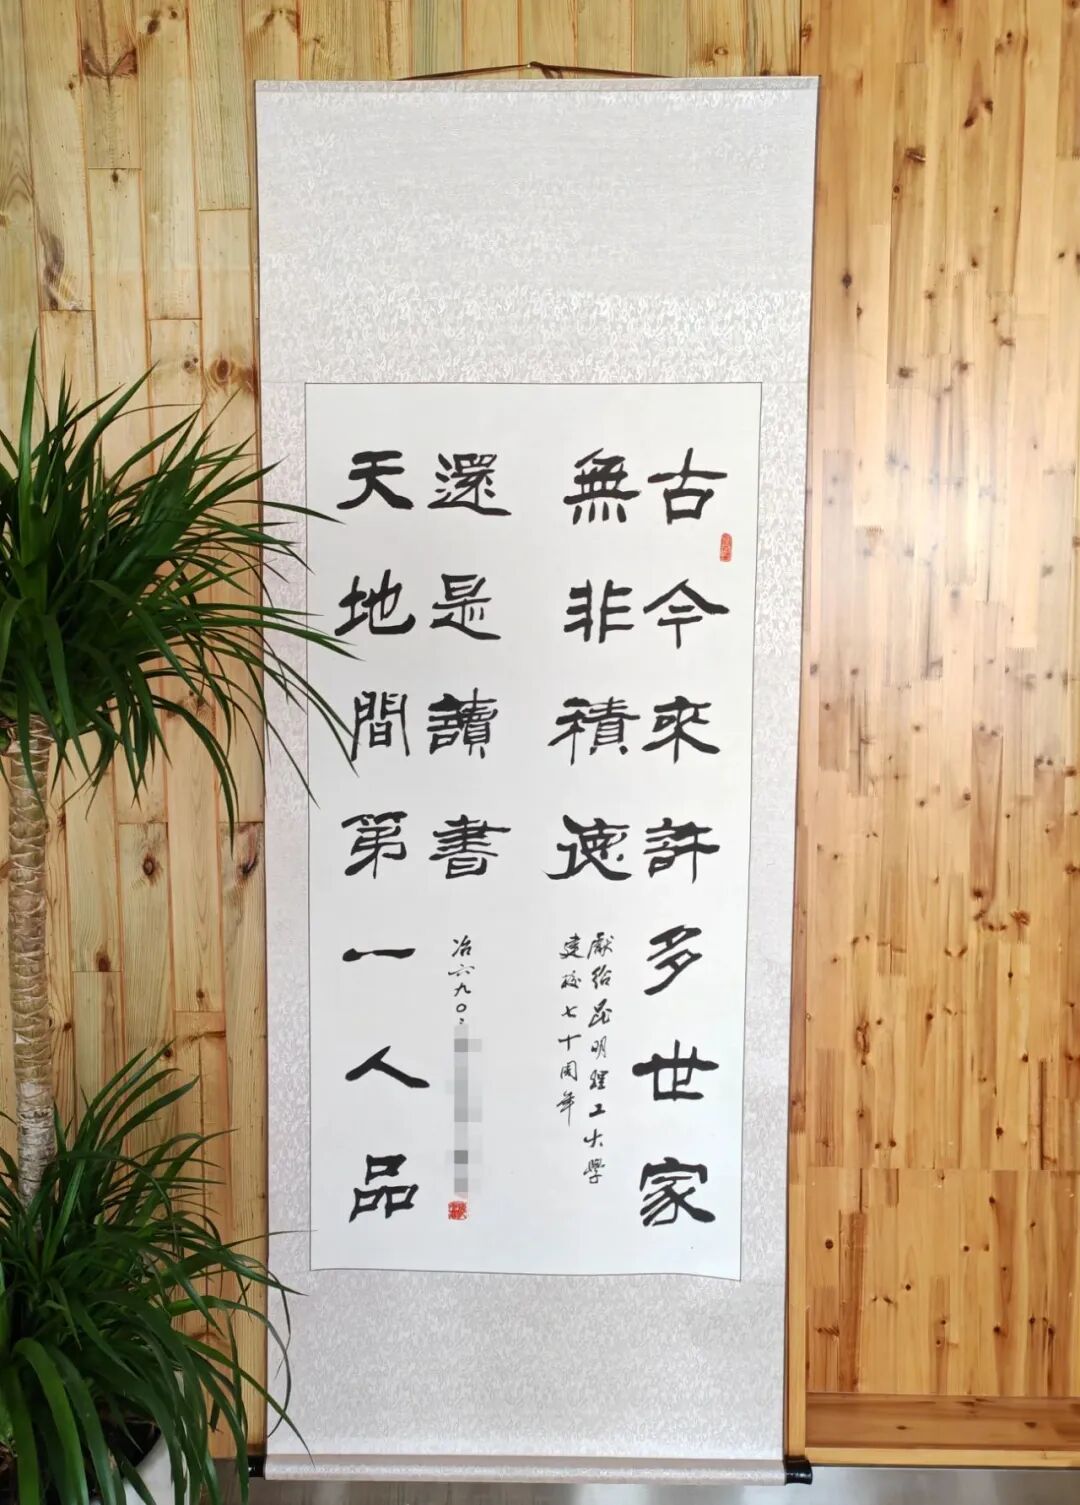 古今來許多世家
無非積德
獻給昆明理工大學
建校七十周年
還是讀書
冶六九〇
天地間第一人品